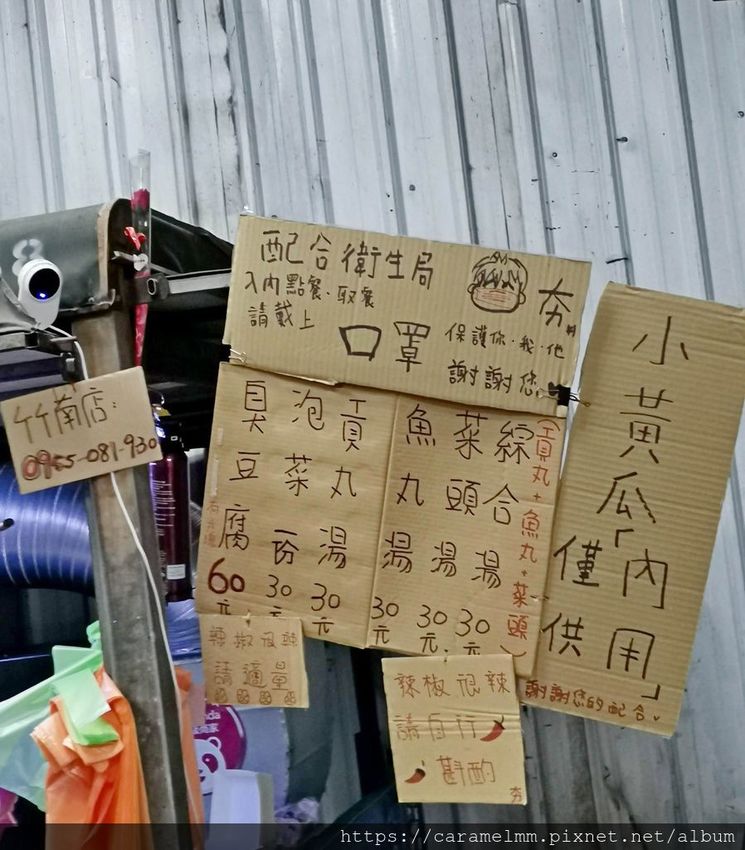 配合衛生局
入內點餐、取餐
請戴上
口罩
夯
保護你.我.他
謝謝您
竹南店:
0955-081-930
臭豆腐 60元
泡菜一份 30元
貢丸湯 30元
魚丸湯 30元
菜頭湯 30元
綜合湯 30元
(貢丸+魚丸+菜頭)
小黃瓜
僅供
「內用」
謝謝您的配合
辣椒很辣
請適量
辣椒很辣
請自行
斟酌
夯
8
https://caramelmm.pixnet.net/album